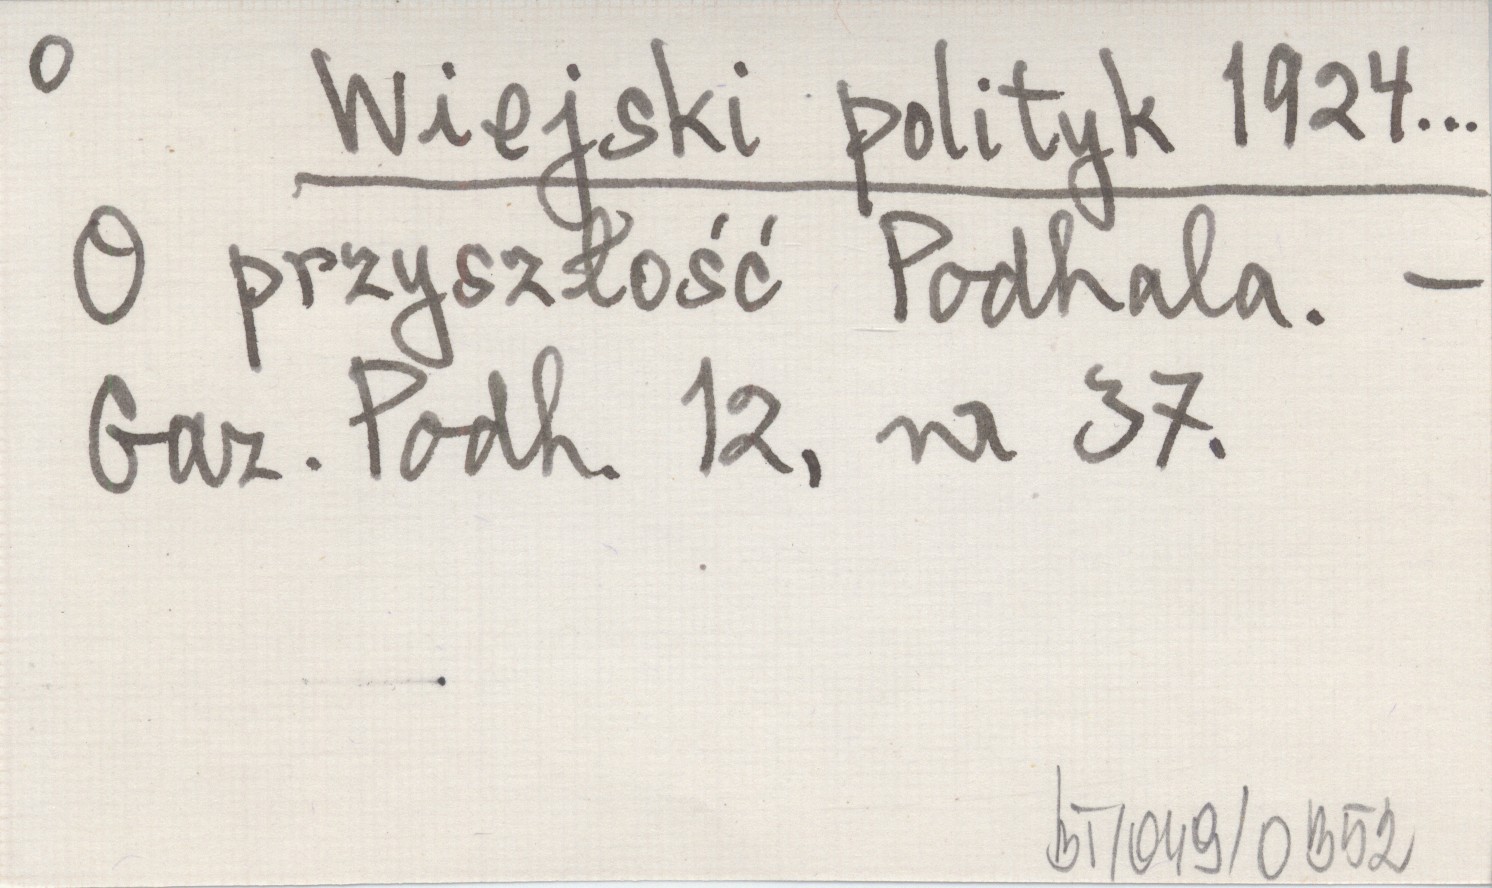 o Wiejski polityk 1924...
O przyszłość Podhala. –
Gaz. Podh. 12, nr 37.
bT/049/0352